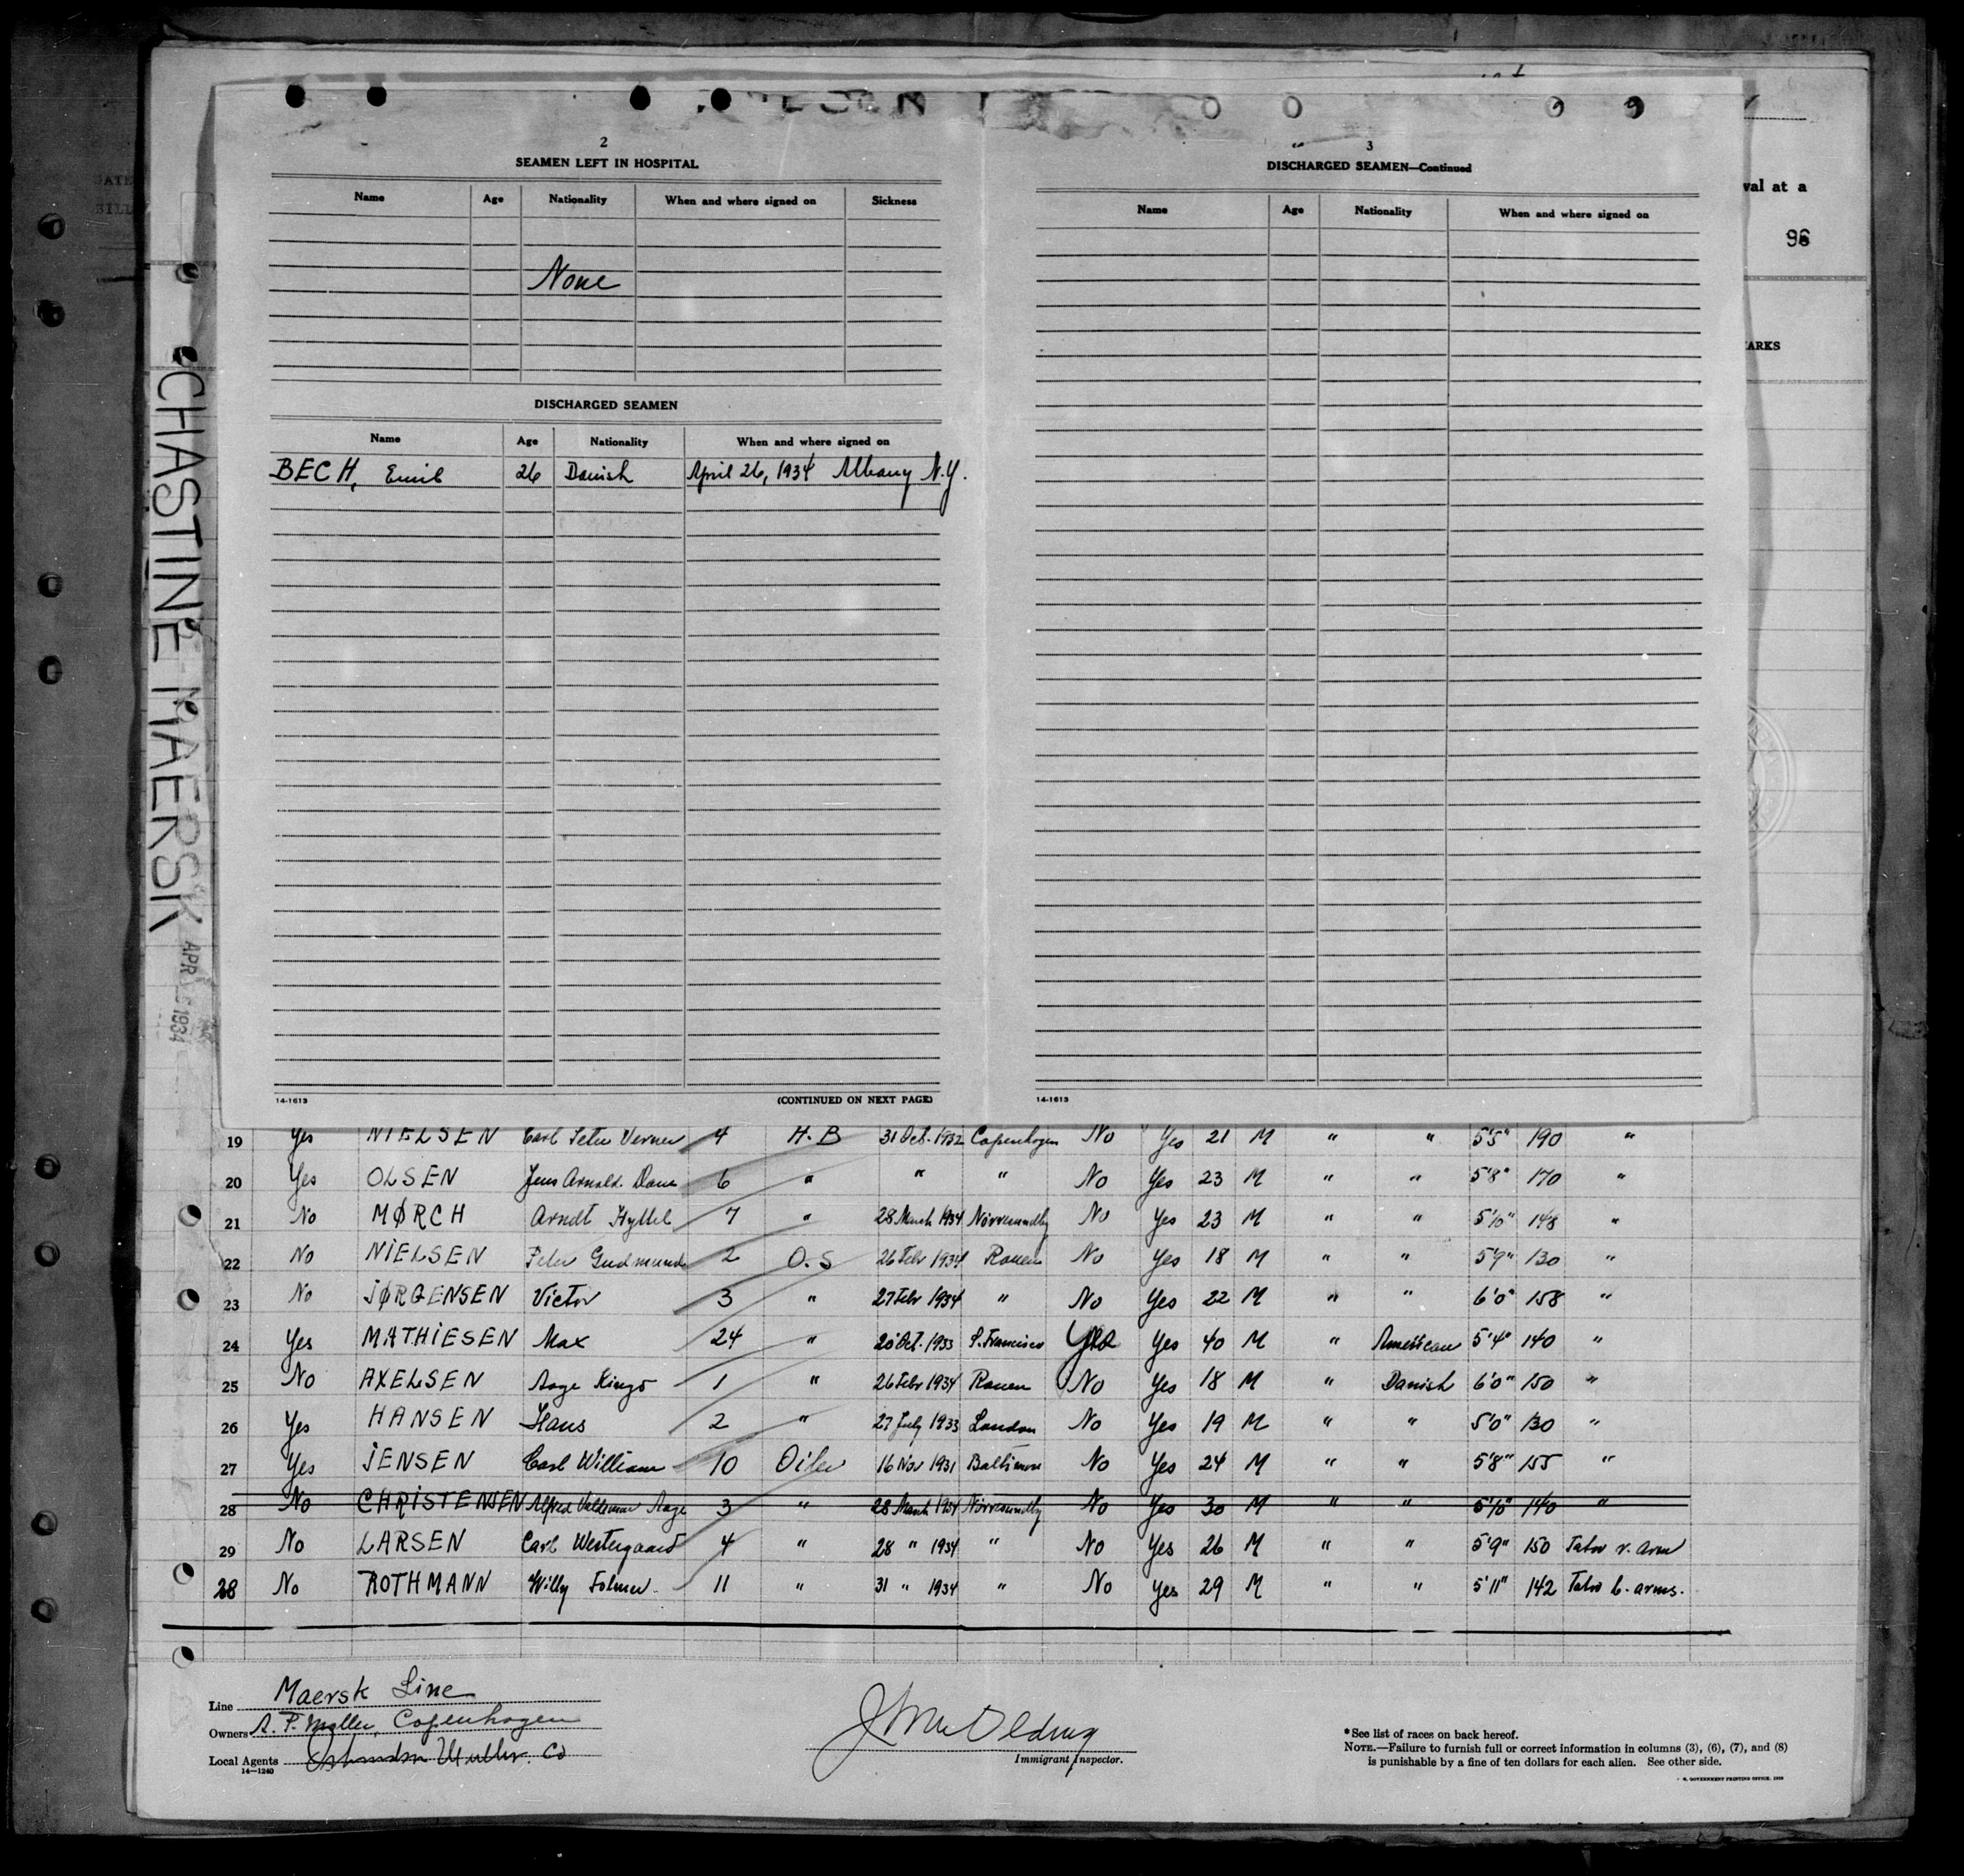 2
SEAMEN LEFT IN HOSPITAL
Name Age Nationality When and where signed on Sickness
None
DISCHARGED SEAMEN
Name Age Nationality When and where signed on
BECH, Emil 26 Danish April 26, 1934 Albany N.Y.
14-1613 (CONTINUED ON NEXT PAGE)
3
DISCHARGED SEAMEN—Continued
Name Age Nationality When and where signed on
14-1613
val at a
96
ARKS
CHASTINE MAERSK
APR 1934
19 Yes NIELSEN Carl Peter Verner 4 H.B 31 Oct. 1932 Copenhagen No Yes 21 M " " 5'5" 190 "
20 Yes OLSEN Jens Arnold Dane 6 " " " No Yes 23 M " " 5'8" 170 "
21 No MØRCH Arndt Hyttel 7 " 28 March 1934 Nørresundby No Yes 23 M " " 5'10" 148 "
22 No NIELSEN Peter Gudmund 2 O.S 26 Febr 1934 Rouen No Yes 18 M " " 5'9" 130 "
23 No JØRGENSEN Victor 3 " 27 Febr 1934 " No Yes 22 M " " 6'0" 158 "
24 Yes MATHIESEN Max 24 " 20 Oct. 1933 S. Francisco Yes Yes 40 M " American 5'4" 140 "
25 No AXELSEN Aage Kingo 1 " 26 Febr 1934 Rouen No Yes 18 M " Danish 6'0" 150 "
26 Yes HANSEN Hans 2 " 27 July 1933 London No Yes 19 M " " 5'0" 130 "
27 Yes JENSEN Carl William 10 Oiler 16 Nov 1931 Baltimore No Yes 24 M " " 5'8" 155 "
28 No CHRISTENSEN Alfred Valdemar Aage 3 " 28 March 1934 Nørresundby No Yes 30 M " " 5'10" 140 "
29 No LARSEN Carl Westergaard 4 " 28 " 1934 " No Yes 26 M " " 5'9" 150 Tatw r. arm
28 No ROTHMANN Willy Folmer 11 " 31 " 1934 " No Yes 29 M " " 5'11" 142 Tatw b. arms.
Line Maersk Line
Owners A. P. Møller, Copenhagen
Local Agents Muller. Co
14—1240
Immigrant Inspector.
*See list of races on back hereof.
NOTE.—Failure to furnish full or correct information in columns (3), (6), (7), and (8)
is punishable by a fine of ten dollars for each alien. See other side.
GOVERNMENT PRINTING OFFICE